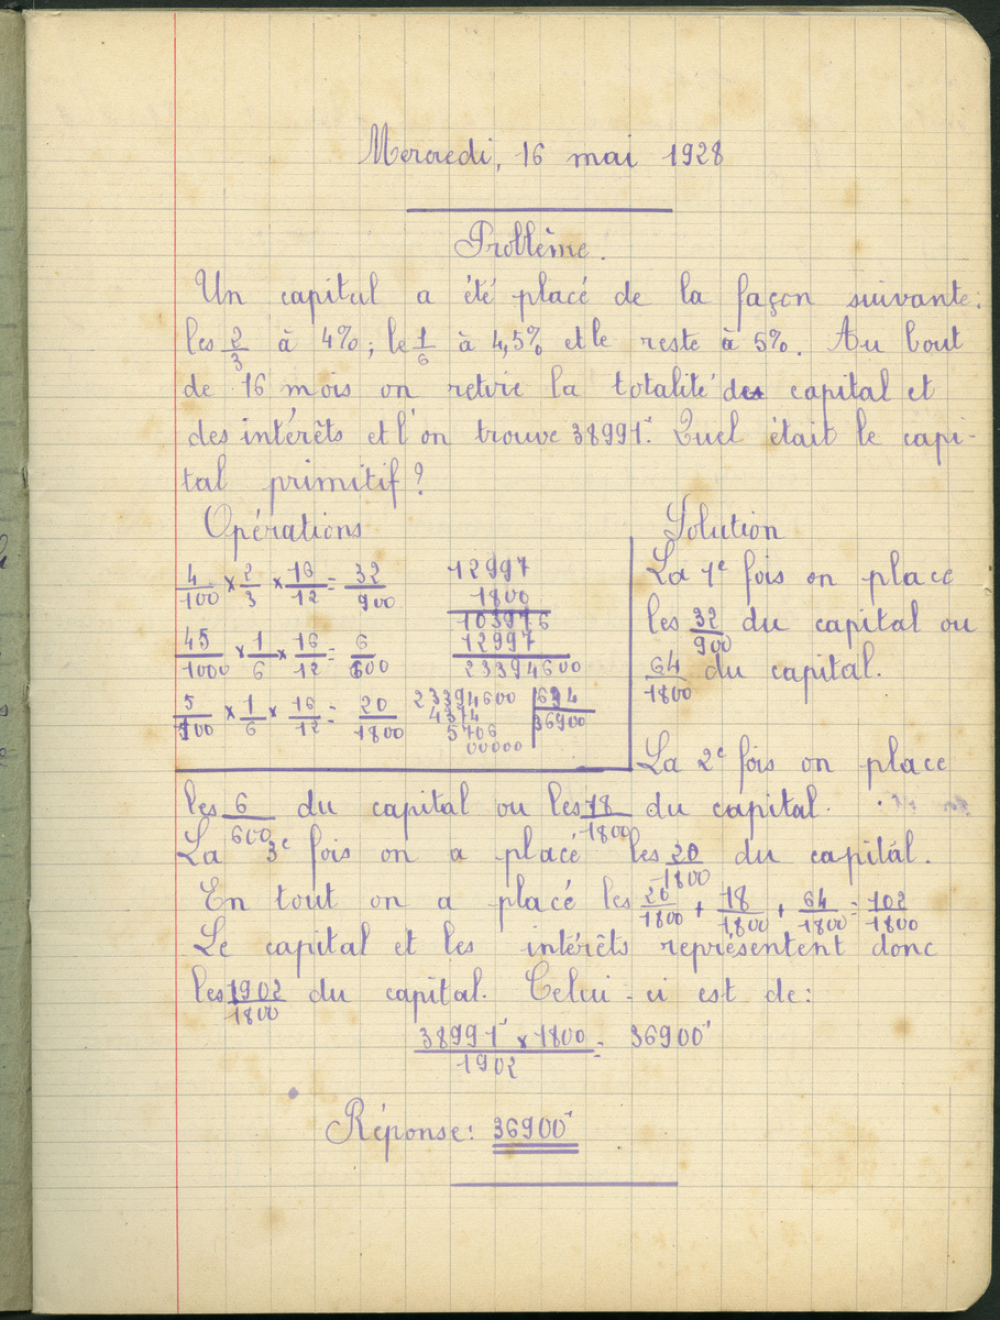 Mercredi, 16 mai 1928
Problème.
Un capital a été placé de la façon suivante:
les 2/3 à 4%; le 1/6 à 4,5% et le reste à 5%. Au bout
de 16 mois on retire la totalité des capital et
des intérêts et l'on trouve 38991f. Quel était le capi-
tal primitif?
Opérations
4/100 x 2/3 x 16/12 = 32/900
45/1000 x 1/6 x 16/12 = 6/600
5/100 x 1/6 x 16/12 = 20/1800
12997
1800
103976
12997
23394600
23394600 634
4374 36900
5706
00000
Solution
La 1e fois on place
les 32/900 du capital ou
64/1800 du capital.
La 2e fois on place
les 6/600 du capital ou les 18/1800 du capital.
La 3e fois on a placé les 20/1800 du capital.
En tout on a placé les 20/1800 + 18/1800 + 64/1800 = 102/1800
Le capital et les intérêts représentent donc
les 1902/1800 du capital. Celui-ci est de:
38991f x 1800 / 1902 = 36900f
Réponse: 36900f